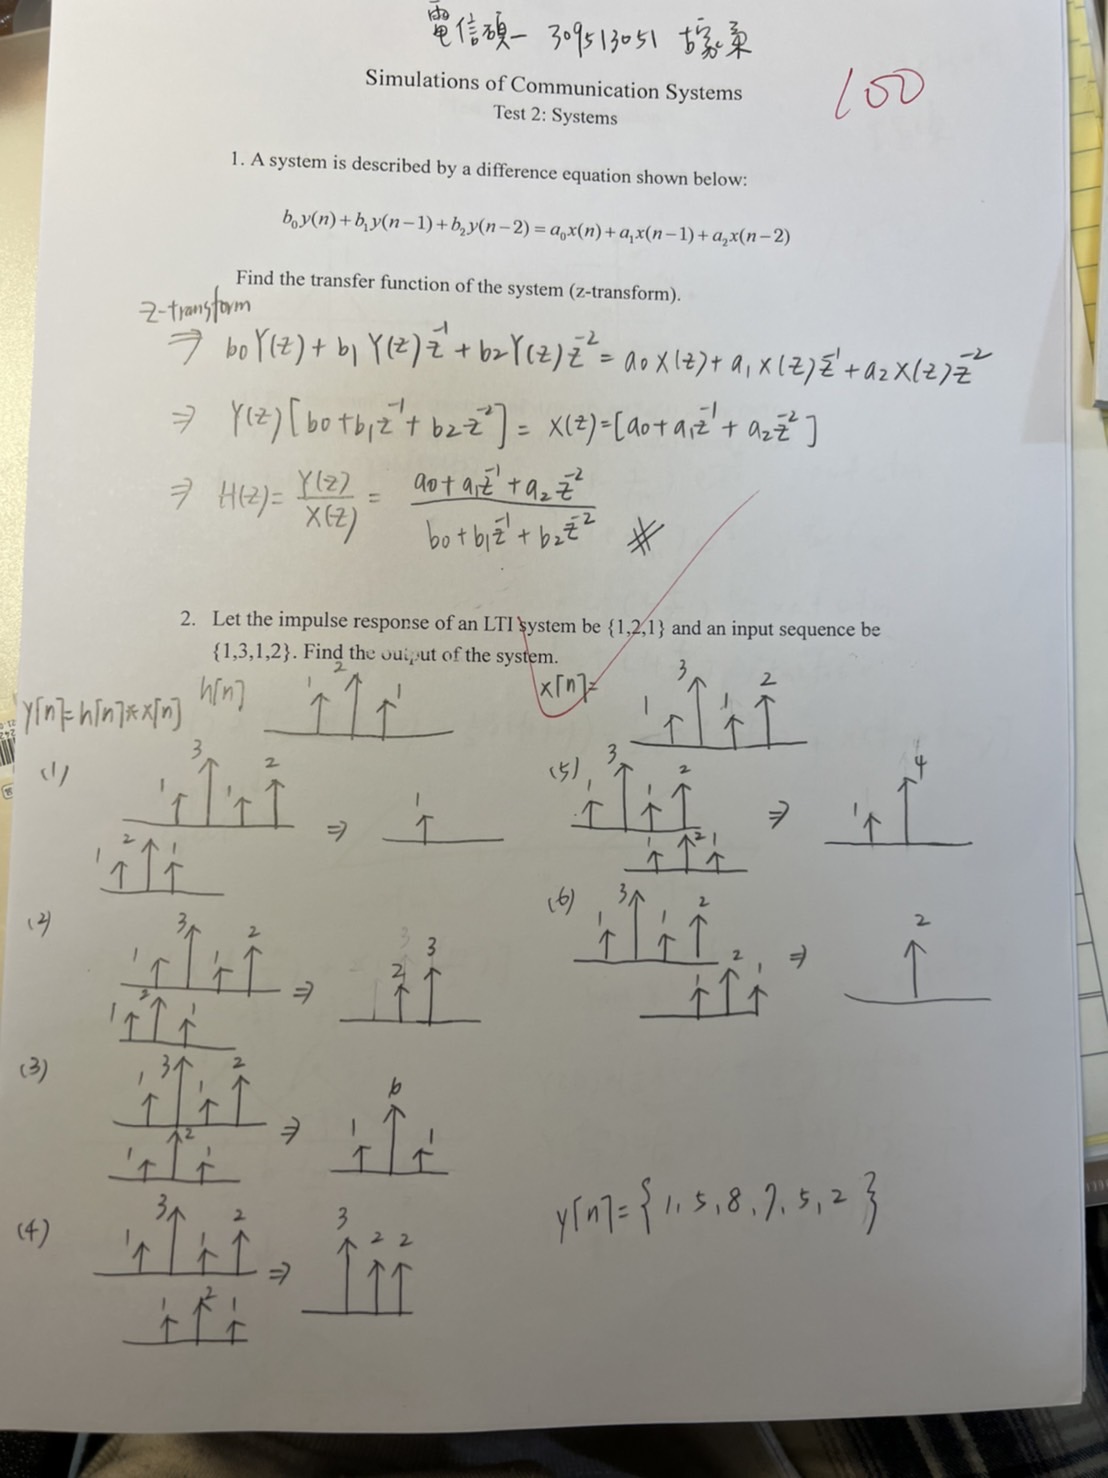 電信碩一 309513051
100
Simulations of Communication Systems
Test 2: Systems
1. A system is described by a difference equation shown below:
b₀y(n)+b₁y(n−1)+b₂y(n−2)=a₀x(n)+a₁x(n−1)+a₂x(n−2)
Find the transfer function of the system (z-transform).
z-transform
⇒ b0Y(z)+b1Y(z)z⁻¹+b2Y(z)z⁻²=a0X(z)+a1X(z)z⁻¹+a2X(z)z⁻²
⇒ Y(z)[b0+b1z⁻¹+b2z⁻²]=X(z)=[a0+a1z⁻¹+a2z⁻²]
⇒ H(z)=Y(z)/X(z)=(a0+a1z⁻¹+a2z⁻²)/(b0+b1z⁻¹+b2z⁻²) #
2. Let the impulse response of an LTI system be {1,2,1} and an input sequence be
{1,3,1,2}. Find the output of the system.
y[n]=h[n]*x[n] h[n] 1 2 1
x[n]= 1 3 1 2
(1) 1 3 1 2 ⇒ 1
1 2 1
(2) 1 3 1 2 ⇒ 2 3
1 2 1
(3) 1 3 1 2 ⇒ 1 6 1
1 2 1
(4) 1 3 1 2 ⇒ 3 2 2
1 2 1
(5) 1 3 1 2 ⇒ 1 4
1 2 1
(6) 1 3 1 2 ⇒ 2
1 2 1
y[n]={1,5,8,7,5,2}